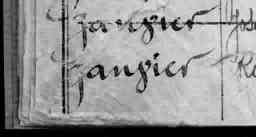 Zangier
Zangier